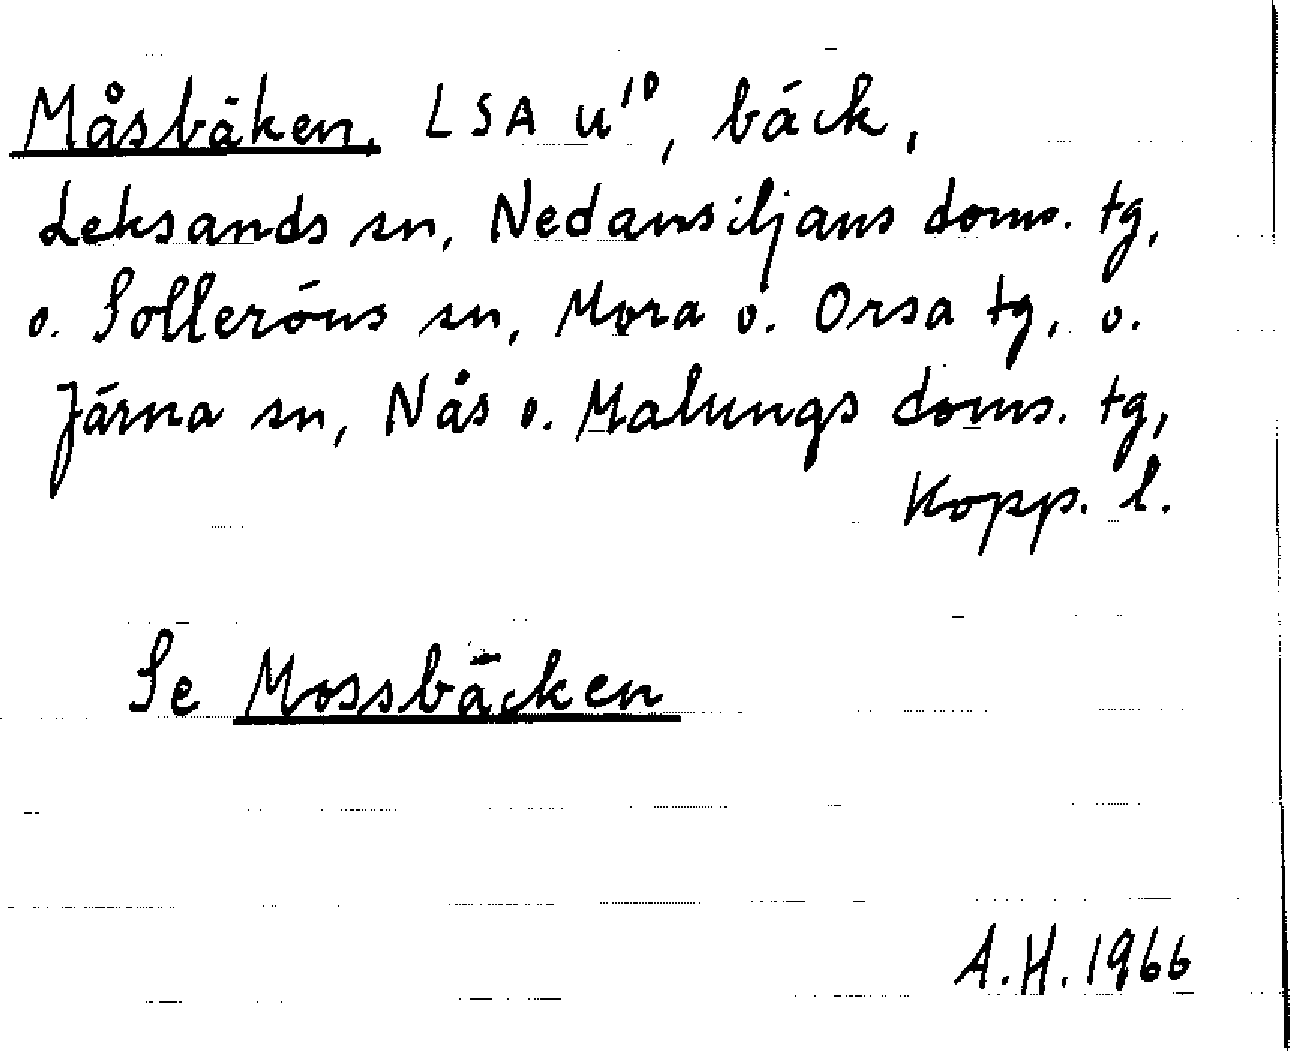 Måsbäken, LSA u¹⁰, bäck,
Leksands sn, Nedansiljans doms. tg,
o. Solleröns sn, Mora o. Orsa tg, o.
Järna sn, Nås o. Malungs doms. tg,
Kopp. l.
Se Mossbäcken
A.H. 1966